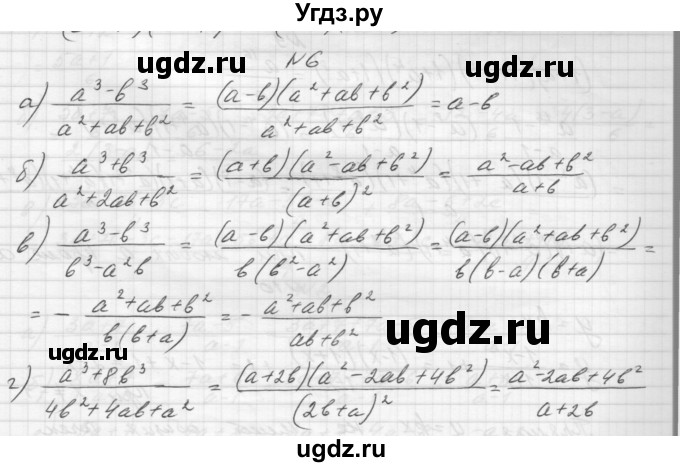 Угдз.ру
№6
ugdz.ru ugdz.ru
а) (a³-b³)/(a²+ab+b²) = ((a-b)(a²+ab+b²))/(a²+ab+b²) = a-b
ugdz.ru ugdz.ru
б) (a³+b³)/(a²+2ab+b²) = ((a+b)(a²-ab+b²))/((a+b)²) = (a²-ab+b²)/(a+b)
ugdz.ru ugdz.ru
в) (a³-b³)/(b³-a²b) = ((a-b)(a²+ab+b²))/(b(b²-a²)) = ((a-b)(a²+ab+b²))/(b(b-a)(b+a)) =
= - (a²+ab+b²)/(b(b+a)) = - (a²+ab+b²)/(ab+b²)
ugdz.ru ugdz.ru
г) (a³+8b³)/(4b²+4ab+a²) = ((a+2b)(a²-2ab+4b²))/((2b+a)²) = (a²-2ab+4b²)/(a+2b)
ugdz.ru